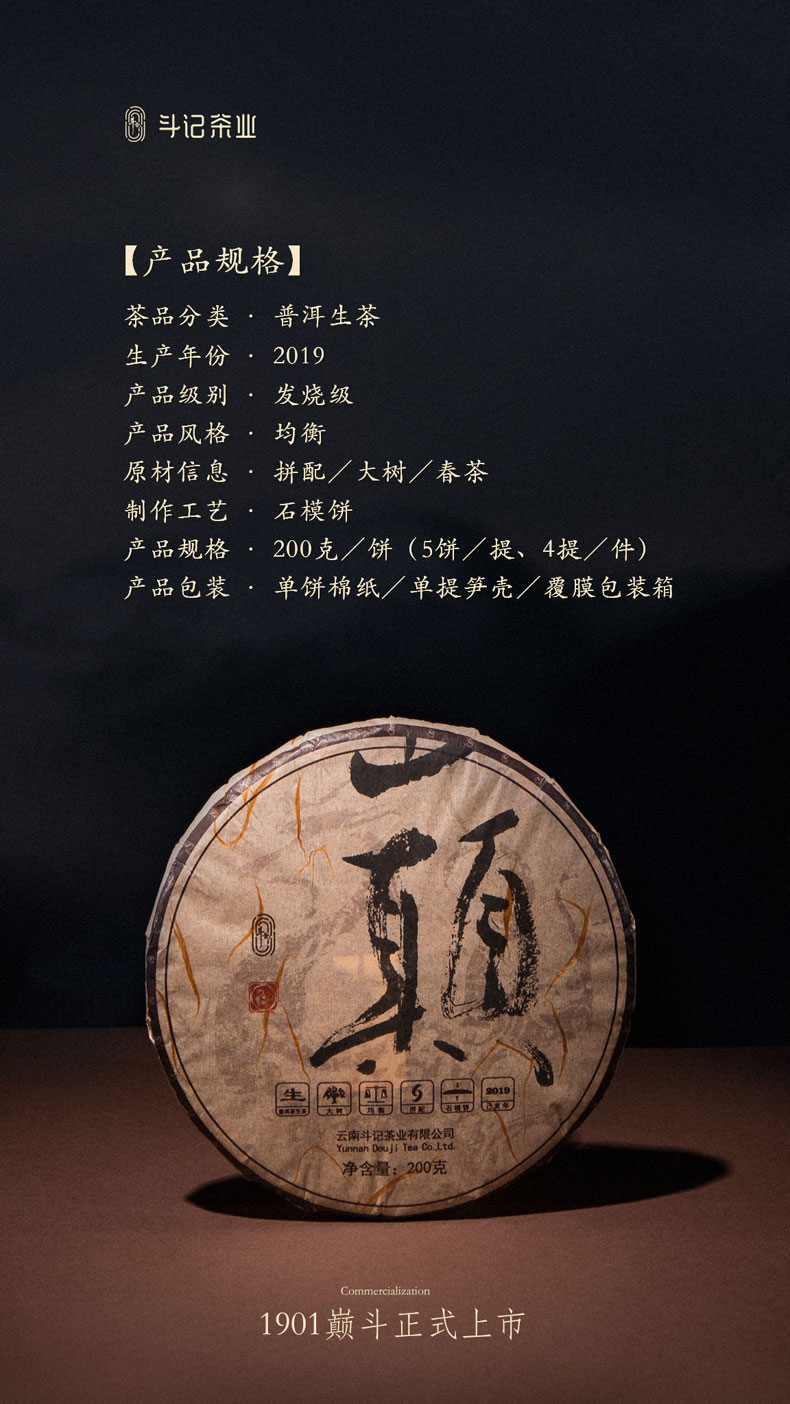 斗记茶业
【产品规格】
茶品分类 · 普洱生茶
生产年份 · 2019
产品级别 · 发烧级
产品风格 · 均衡
原材信息 · 拼配／大树／春茶
制作工艺 · 石模饼
产品规格 · 200克／饼（5饼／提、4提／件）
产品包装 · 单饼棉纸／单提笋壳／覆膜包装箱
巅
生 大树 均衡 拼配 石模饼 2019
普洱茶生茶 己亥年
云南斗记茶业有限公司
Yunnan Douji Tea Co.,Ltd.
净含量：200克
Commercialization
1901巅斗正式上市